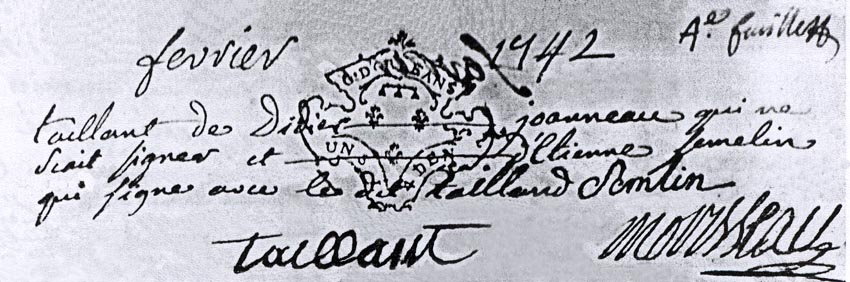 Ae feuillet
fevrier 1742
G. D'ORLEANS
taillant de Didier joanneau qui ne
scait signer et d'Etienne semelin
UN S. DEN
qui signe avec le dit tailland Semlin
taillant